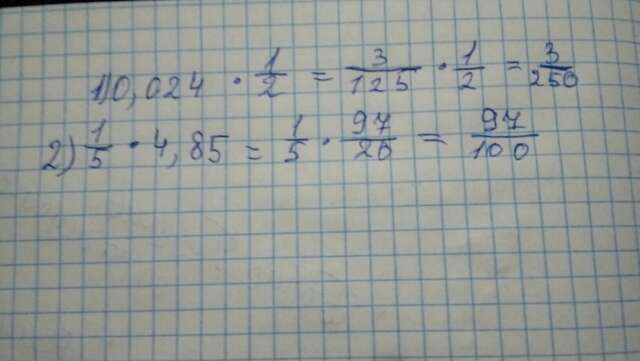 1) 0,024 · 1/2 = 3/125 · 1/2 = 3/250
2) 1/5 · 4,85 = 1/5 · 97/20 = 97/100